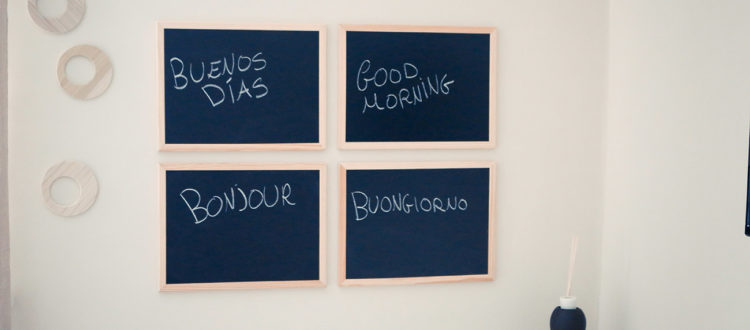 BUENOS
DÍAS
GOOD
MORNING
BONJOUR
BUONGIORNO